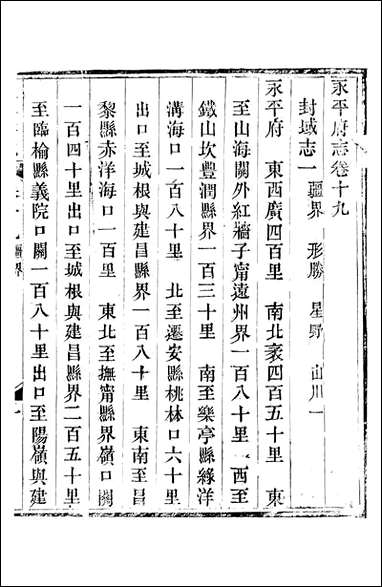 永平府志卷十九
封域志一 疆界 形勝 星野 山川一
永平府 東西廣四百里 南北袤四百五十里 東
至山海關外紅牆子甯遠州界一百八十里 西至
鐵山坎豐潤縣界一百三十里 南至樂亭縣綠洋
溝海口一百八十里 北至遷安縣桃林口六十里
出口至城根與建昌縣界一百八十里 東南至昌
黎縣赤洋海口一百里 東北至撫甯縣界嶺口關
一百四十里出口至城根與建昌縣界二百五十里
至臨榆縣義院口關一百八十里出口至陽嶺與建
疆界